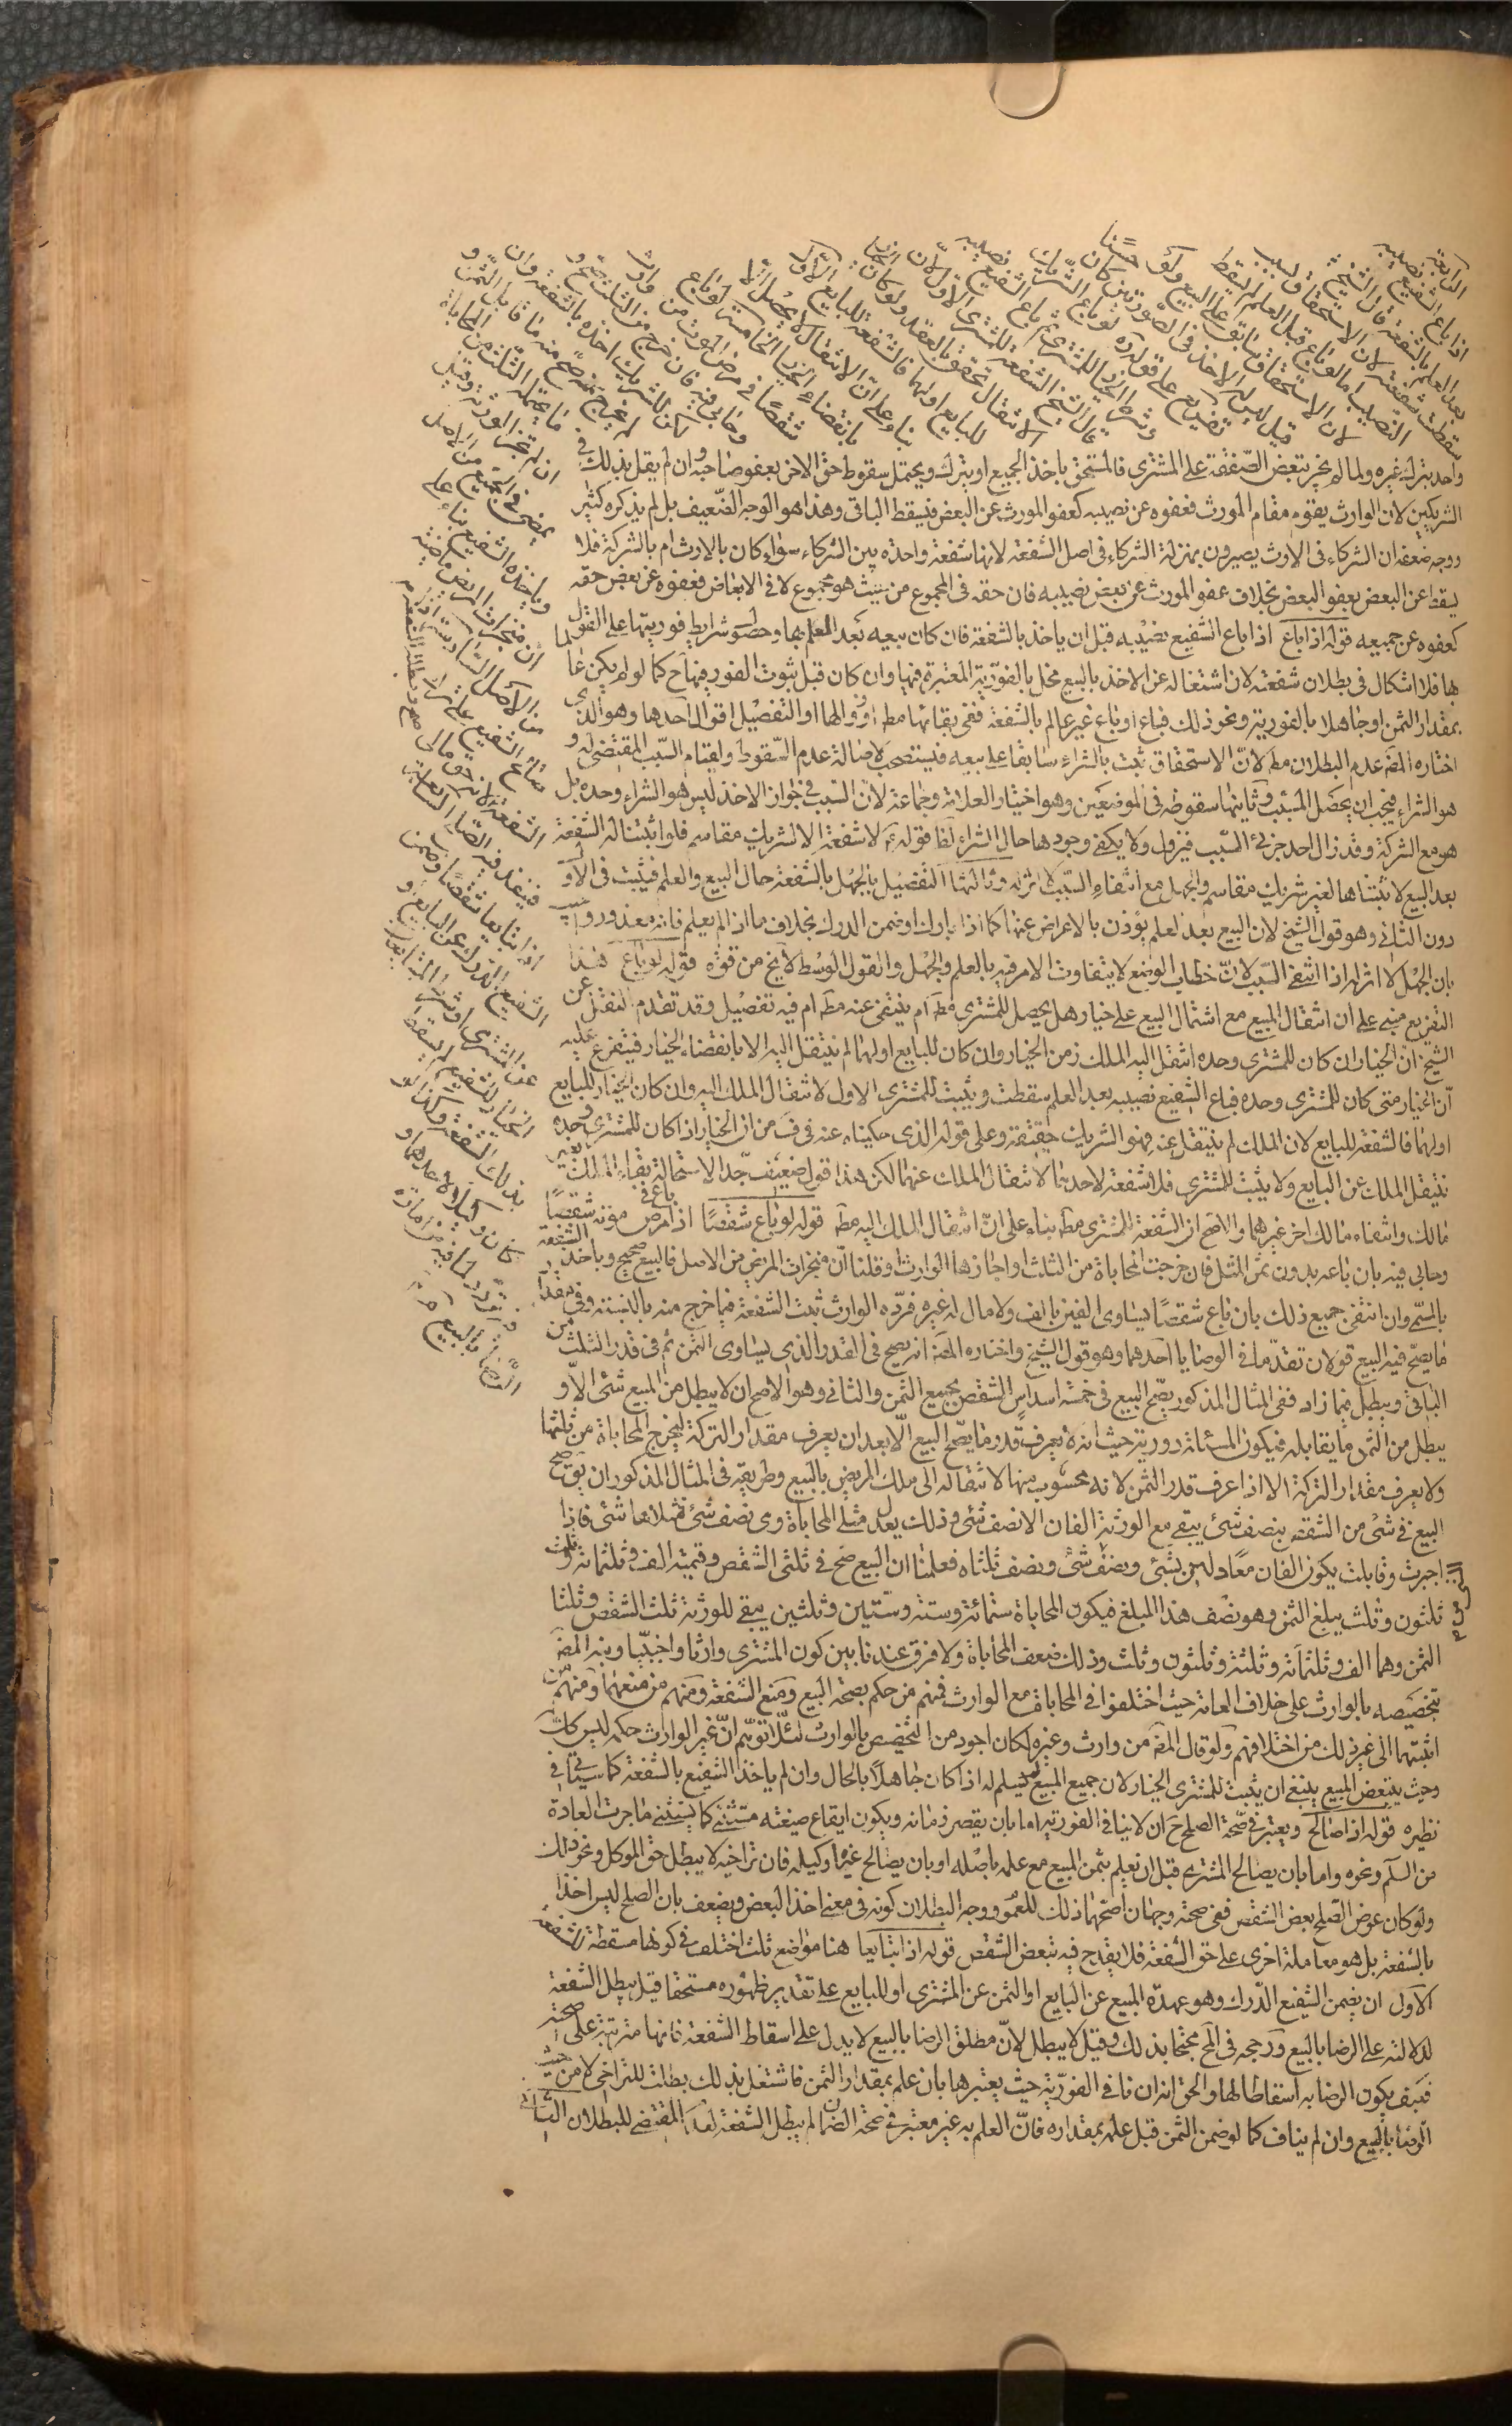 الرابعة
اذا باع الشفيع نصيبه
بعد العلم بالشفعة قال الشيخ
سقطت شفعته لان الاستحقاق بسبب
النصيب اما لو باع قبل العلم لم يسقط
لان الاستحقاق سابق على البيع ولو
قيل ليس له الاخذ في الصورتين كان حسنًا
تفريع على قوله ره لو باع الشريك نصيبه
وشرط الخيار للمشترى ثم باع الشفيع نصيبه
قال الشيخ الشفعة للمشترى الاول لان
الانتقال تحقق بالعقد ولو كان الخيار
للبايع او لهما فالشفعة للبايع الاول
بناء على ان الانتقال لا يحصل الا
بانقضاء الخيار الخامسة لو باع
شقصًا في مرض الموت من وارث
وحابى فيه فان خرج من الثلث صح و
كان للشريك اخذه بالشفعة وان
لم يخرج صح منه ما قابل الثمن و
ما يحتمله الثلث من المحاباة
ان لم تجز الورثة وقيل
يمضى في الجميع من الاصل
وياخذه الشفيع بناء على
ان منجزات المريض ماضية
من الاصل السادسة اذا
صالح الشفيع على ترك الشفعة صح وبطلت الشفعة
لانه حق مالى
فينفذ فيه الصلح السابعة
اذا تبايعا شقصًا وضمن
الشفيع الدرك عن البايع او
عن المشترى او شرط المتبايعان
الخيار للشفيع لم يسقط
بذلك الشفعة وكذا لو
كان وكيلا لاحدهما و
فيه تردد لما فيه من امارة
الرضا بالبيع
واحد بترك غيره ولما لم يجز تبعض الصفقة على المشترى فالمستحق ياخذ الجميع او يترك ويحتمل سقوط حق الاخر بعفو صاحبه وان لم يقل بذلك في
الشريكين لان الوارث يقوم مقام المورث فعفوه عن نصيبه كعفو المورث عن البعض فيسقط الباقى وهذا هو الوجه الضعيف بل لم يذكره كثير
ووجه ضعفه ان الشركاء في الارث يصيرون بمنزلة الشركاء في اصل الشفعة لانها شفعة واحدة بين الشركاء سواء كان بالارث ام بالشركة فلا
يسقط عن البعض بعفو البعض بخلاف عفو المورث عن بعض نصيبه فان حقه في المجموع من حيث هو مجموع لا في الابعاض فعفوه عن بعض حقه
كعفوه عن جميعه قوله اذا باع اذا باع الشفيع نصيبه قبل ان ياخذ بالشفعة فان كان بيعه بعد العلم بها وحصول شرايط فوريتها على القول
بها فلا اشكال في بطلان شفعته لان اشتغاله عن الاخذ بالبيع مخل بالفورية المعتبرة فيها وان كان قبل ثبوت الفور فيها ح كما لو لم يكن عالما
بمقدار الثمن او جاهلا بالفورية ونحو ذلك فباع او باع غير عالم بالشفعة ففى بقائها مط او زوالها او التفصيل اقوال احدها وهو الذى
اختاره المص عدم البطلان مط لان الاستحقاق ثبت بالشراء سابقا على بيعه فيستصحب لاصالة عدم السقوط ولقيام السبب المقتضى له و
هو الشراء فيجب ان يحصل المسبب وثانيها سقوطه في الموضعين وهو اختيار العلامة وجماعة لان السبب في جواز الاخذ ليس هو الشراء وحده بل
هو مع الشركة وقد زال احد جزئى السبب فيزول ولا يكفى وجودها حال الشراء لنا قوله ع لا شفعة الا لشريك مقاسم فلو اثبتنا له الشفعة
بعد البيع لاثبتناها لغير شريك مقاسم والجهل مع انتفاء السبب لا اثر له وثالثها التفصيل بالجهل بالشفعة حال البيع والعلم فيثبت في الاول
دون الثانى وهو قول الشيخ لان البيع بعد العلم يؤذن بالاعراض عنها كما اذا بارك او ضمن الدرك بخلاف ما اذا لم يعلم فانه معذور ورد
بان الجهل لا اثر له اذا انتفى السبب لان خطاب الوضع لا يتفاوت الامر فيه بالعلم والجهل والقول الوسط لا يخ من قوة قوله لو باع هذا
التفريع مبنى على ان انتقال المبيع مع اشتمال البيع على خيار هل يحصل للمشترى مط ام ينتفى عنه مط ام فيه تفصيل وقد تقدم النقل عن
الشيخ ان الخيار ان كان للمشترى وحده انتقل اليه الملك زمن الخيار وان كان للبايع او لهما لم ينتقل اليه الا بانقضاء الخيار فيتفرع عليه
ان الخيار متى كان للمشترى وحده فباع الشفيع نصيبه بعد العلم سقطت ويثبت للمشترى الاول لانتقال الملك اليه وان كان الخيار للبايع
او لهما فالشفعة للبايع لان الملك لم ينتقل عنه فهو الشريك حقيقة وعلى قوله الذى حكيناه عنه في ف من ان الخيار اذا كان للمشترى وحده
ينتقل الملك عن البايع ولا يثبت للمشترى فلا شفعة لاحدهما لانتقال الملك عنهما لكن هذا قول ضعيف جدا لاستحالة بقاء الملك بغير
مالك وانتفاء مالك اخر غيرهما والاصح ان الشفعة للمشترى مط بناء على ان انتقال الملك اليه مط قوله لو باع شقصًا اذا باع في مرض موته شقصًا
وحابى فيه بان باعه بدون ثمن المثل فان خرجت المحاباة من الثلث او اجازها الوارث او قلنا ان منجزات المريض من الاصل فالبيع صحيح وياخذ الشفعة
بالمسمى وان انتفى جميع ذلك بان باع شقصًا يساوى الفين بالف ولا مال له غيره فرده الوارث ثبتت الشفعة فيما خرج منه بالنسبة وفى مقدار
ما يصح فيه البيع قولان تقدما في الوصايا احدهما وهو قول الشيخ واختاره المص انه يصح في القدر الذى يساوى الثمن ثم في قدر الثلث من
الباقى ويبطل فيما زاد ففى المثال المذكور يصح البيع في خمسة اسداس الشقص بجميع الثمن والثانى وهو الاصح ان لا يبطل من المبيع شئ الا و
يبطل من الثمن ما يقابله فيكون المسئلة دورية حيث انه لا يعرف قدر ما يصح البيع الا بعد ان يعرف مقدار التركة ليخرج المحاباة من ثلثها
ولا يعرف مقدار التركة الا اذا عرف قدر الثمن لانه محسوب منها لانتقاله الى ملك المريض بالبيع وطريقه في المثال المذكور ان يق صح
البيع في شئ من الشقص بنصف شئ يبقى مع الورثة الفان الا نصف شئ وذلك يعدل مثلى المحاباة وهى نصف شئ فمثلاها شئ فاذا
اجبرت وقابلت يكون الفان معادلين بشئ ونصف شئ ونصف ثلثاه فعلمنا ان البيع صح في ثلثى الشقص وقيمته الف وثلثمائة وثلثة
ثلثون وثلث يبلغ الثمن وهو نصف هذا المبلغ فيكون المحاباة ستمائة وستة وستين وثلثين يبقى للورثة ثلث الشقص وثلثا
الثمن وهما الف وثلثمائة وثلثة وثلثون وثلث وذلك ضعف المحاباة ولا فرق عندنا بين كون المشترى وارثا واجنبيا ونبه المص
بتخصيصه بالوارث على خلاف العامة حيث اختلفوا في المحاباة مع الوارث فمنهم من حكم بصحة البيع ومنع الشفعة ومنهم من منعهما ومنهم من
اثبتهما الى غير ذلك من اختلافهم ولو قال المص من وارث وغيره لكان اجود من التخصيص بالوارث لئلا يتوهم ان غير الوارث حكمه ليس كك
وحيث يتبعض المبيع ينبغى ان يثبت للمشترى الخيار لان جميع المبيع لم يسلم له اذا كان جاهلا بالحال وان لم ياخذ الشفيع بالشفعة كما سياتى في
نظيره قوله اذا صالح ويعتبر في صحة الصلح ح ان لا ينافى الفورية اما بان يقصر زمانه ويكون ايقاع صيغته مستثنى كما يستثنى ما جرت العادة
من السلم ونحوه واما بان يصالح المشترى قبل ان يعلم بثمن المبيع مع علمه باصله او بان يصالح غيرها وكيله فان تراخيه لا يبطل حق الموكل ونحو ذلك
ولو كان عوض الصلح بعض الشقص ففى صحته وجهان اصحهما ذلك للعموم ووجه البطلان كونه في معنى اخذ البعض ويضعف بان الصلح ليس اخذا
بالشفعة بل هو معاملة اخرى على حق الشفعة فلا يقدح فيه تبعض الشقص قوله اذا تبايعا هنا مواضع ثلث اختلف في كونها مسقطة للشفعة
الاول ان يضمن الشفيع الدرك وهو عهدة المبيع عن البايع او الثمن عن المشترى او للبايع على تقدير ظهوره مستحقا قيل يبطل الشفعة
لدلالته على الرضا بالبيع ورجحه في لخ محتجا بذلك وقيل لا يبطل لان مطلق الرضا بالبيع لا يدل على اسقاط الشفعة فانها مترتبة على صحته
فكيف يكون الرضا به اسقاطا لها والحق انه ان نافى الفورية حيث يعتبرها بان علم بمقدار الثمن فاشتغل بذلك بطلت للتراخى لا من حيث
الرضا بالبيع وان لم يناف كما لو ضمن الثمن قبل علمه بمقداره فان العلم به غير معتبر في صحة الضمان لم يبطل الشفعة لفقد المقتضى للبطلان الثانى